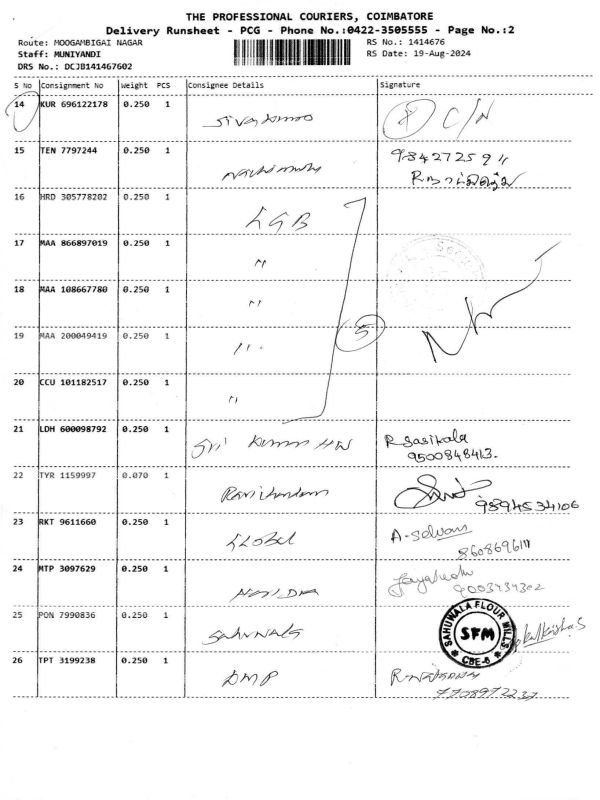 THE PROFESSIONAL COURIERS, COIMBATORE
Delivery Runsheet - PCG - Phone No.:0422-3505555 - Page No.:2
Route: MOOGAMBIGAI NAGAR RS No.: 1414676
Staff: MUNIYANDI RS Date: 19-Aug-2024
DRS No.: DCJB141467602
S No Consignment No Weight PCS Consignee Details Signature
14 KUR 696122178 0.250 1 8 C/N
15 TEN 7797244 0.250 1 9842725911
16 HRD 305778202 0.250 1 LGB
17 MAA 866897019 0.250 1 "
18 MAA 108667780 0.250 1 "
19 MAA 200049419 0.250 1 " 5
20 CCU 101182517 0.250 1 "
21 LDH 600098792 0.250 1 Sri Kumaran HW R Sasikala
9500848413.
22 TYR 1159997 0.070 1 9894534106
23 RKT 9611660 0.250 1 Global A-Selvam
24 MTP 3097629 0.250 1 9003434302
25 PON 7990836 0.250 1 SAHUWALA FLOUR MILLS SFM CBE-8
26 TPT 3199238 0.250 1 DMP
7708972237